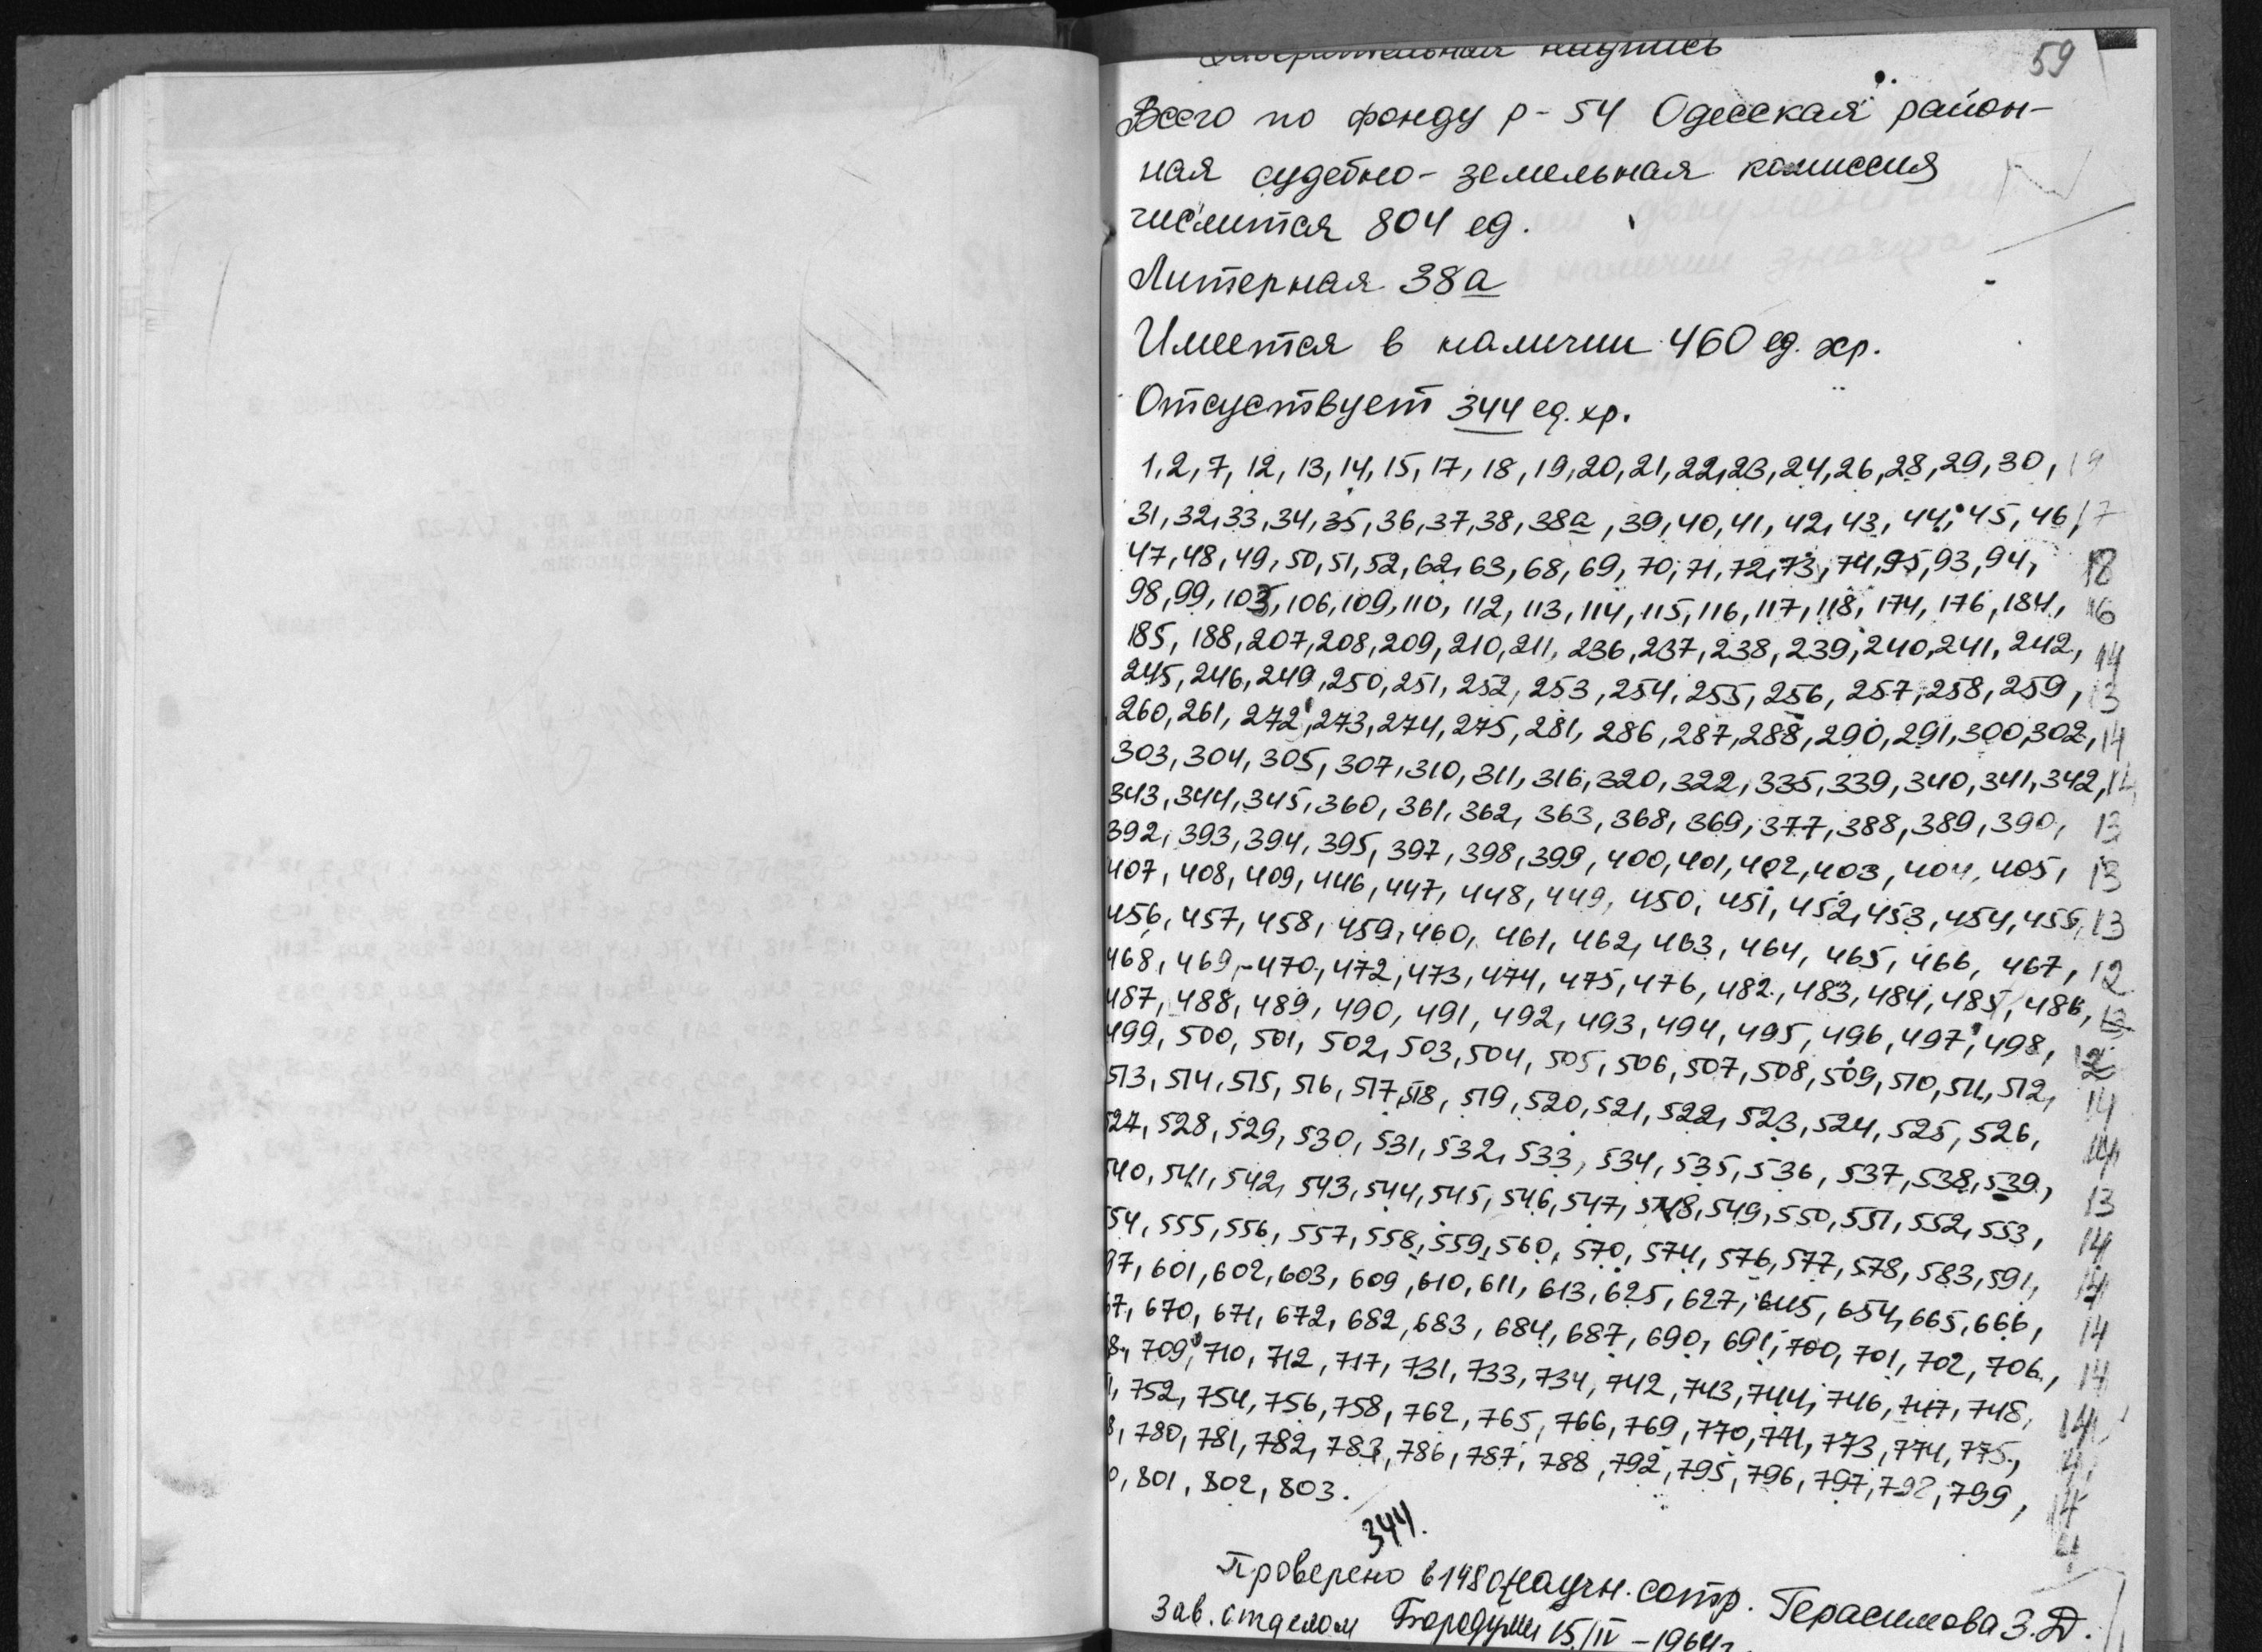 надпись
59
Всего по фонду р-54 Одесская район-
ная судебно-земельная комиссия
числится 804 ед.
Литерная 38а
Имеется в наличии 460 ед. хр.
Отсуствует 344 ед. хр.
1, 2, 7, 12, 13, 14, 15, 17, 18, 19, 20, 21, 22, 23, 24, 26, 28, 29, 30, 19
31, 32, 33, 34, 35, 36, 37, 38, 38а, 39, 40, 41, 42, 43, 44, 45, 46, 17
47, 48, 49, 50, 51, 52, 62, 63, 68, 69, 70, 71, 72, 73, 74, 95, 93, 94, 18
98, 99, 103, 106, 109, 110, 112, 113, 114, 115, 116, 117, 118, 174, 176, 184, 16
185, 188, 207, 208, 209, 210, 211, 236, 237, 238, 239, 240, 241, 242, 14
245, 246, 249, 250, 251, 252, 253, 254, 255, 256, 257, 258, 259, 13
260, 261, 272, 273, 274, 275, 281, 286, 287, 288, 290, 291, 300, 302, 14
303, 304, 305, 307, 310, 311, 316, 320, 322, 335, 339, 340, 341, 342, 14
343, 344, 345, 360, 361, 362, 363, 368, 369, 377, 388, 389, 390, 13
392, 393, 394, 395, 397, 398, 399, 400, 401, 402, 403, 404, 405, 13
407, 408, 409, 446, 447, 448, 449, 450, 451, 452, 453, 454, 455, 13
456, 457, 458, 459, 460, 461, 462, 463, 464, 465, 466, 467, 12
468, 469, 470, 472, 473, 474, 475, 476, 482, 483, 484, 485, 486, 13
487, 488, 489, 490, 491, 492, 493, 494, 495, 496, 497, 498, 12
499, 500, 501, 502, 503, 504, 505, 506, 507, 508, 509, 510, 511, 512, 14
513, 514, 515, 516, 517, 518, 519, 520, 521, 522, 523, 524, 525, 526, 14
527, 528, 529, 530, 531, 532, 533, 534, 535, 536, 537, 538, 539, 13
540, 541, 542, 543, 544, 545, 546, 547, 548, 549, 550, 551, 552, 553, 14
54, 555, 556, 557, 558, 559, 560, 570, 574, 576, 577, 578, 583, 591, 14
97, 601, 602, 603, 609, 610, 611, 613, 625, 627, 645, 654, 665, 666, 14
67, 670, 671, 672, 682, 683, 684, 687, 690, 691, 700, 701, 702, 706, 14
8, 709, 710, 712, 717, 731, 733, 734, 742, 743, 744, 746, 747, 748, 14
1, 752, 754, 756, 758, 762, 765, 766, 769, 770, 771, 773, 774, 775, 14
8, 780, 781, 782, 783, 786, 787, 788, 792, 795, 796, 797, 798, 799, 14
0, 801, 802, 803. 4
344.
Проверено в научн. сотр. Герасимова З.Д.
Зав. отделом 15/IV-1964г.